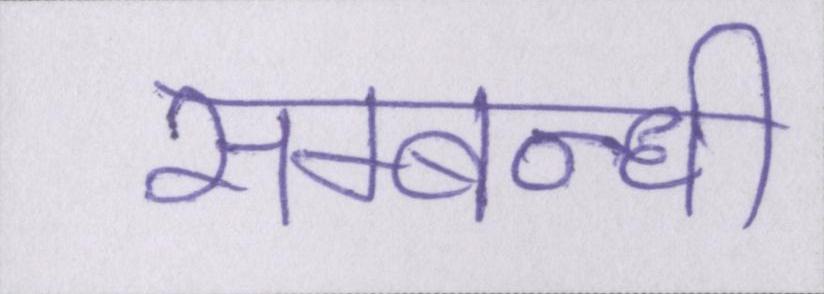 सम्बन्धी